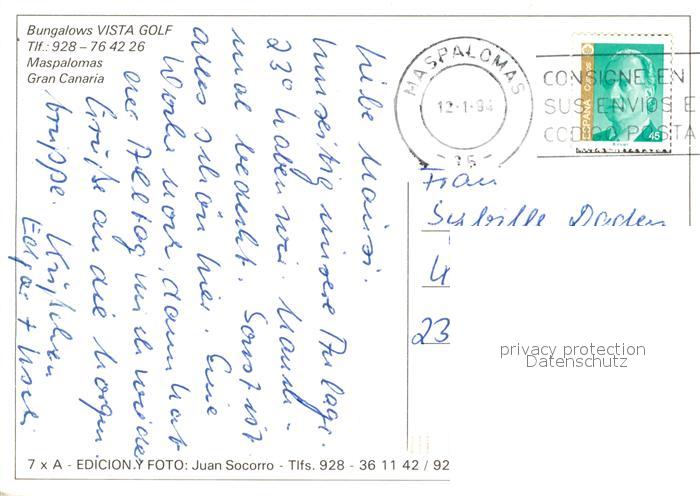 Bungalows VISTA GOLF
Tlf.: 928 – 76 42 26
Maspalomas
Gran Canaria
Liebe Mausi.
umseitig unsere Anlage.
23° haben wir. Manch-
mal bedeckt. Sonst ist
alles schön hier. Eine
Woche noch, dann hat
der Alltag mich wieder
Grüße an die Morgen
truppe. Küßchen
Edgar + Uschi
MASPALOMAS
12-1-94
CONSIGNE EN
SUS ENVIOS E
CODIGO POSTA
ESPAÑA
CORREOS
45
Frau
Sybille Daden
4
23
privacy protection
Datenschutz
7 x A - EDICION Y FOTO: Juan Socorro - Tlfs. 928 - 36 11 42 / 92